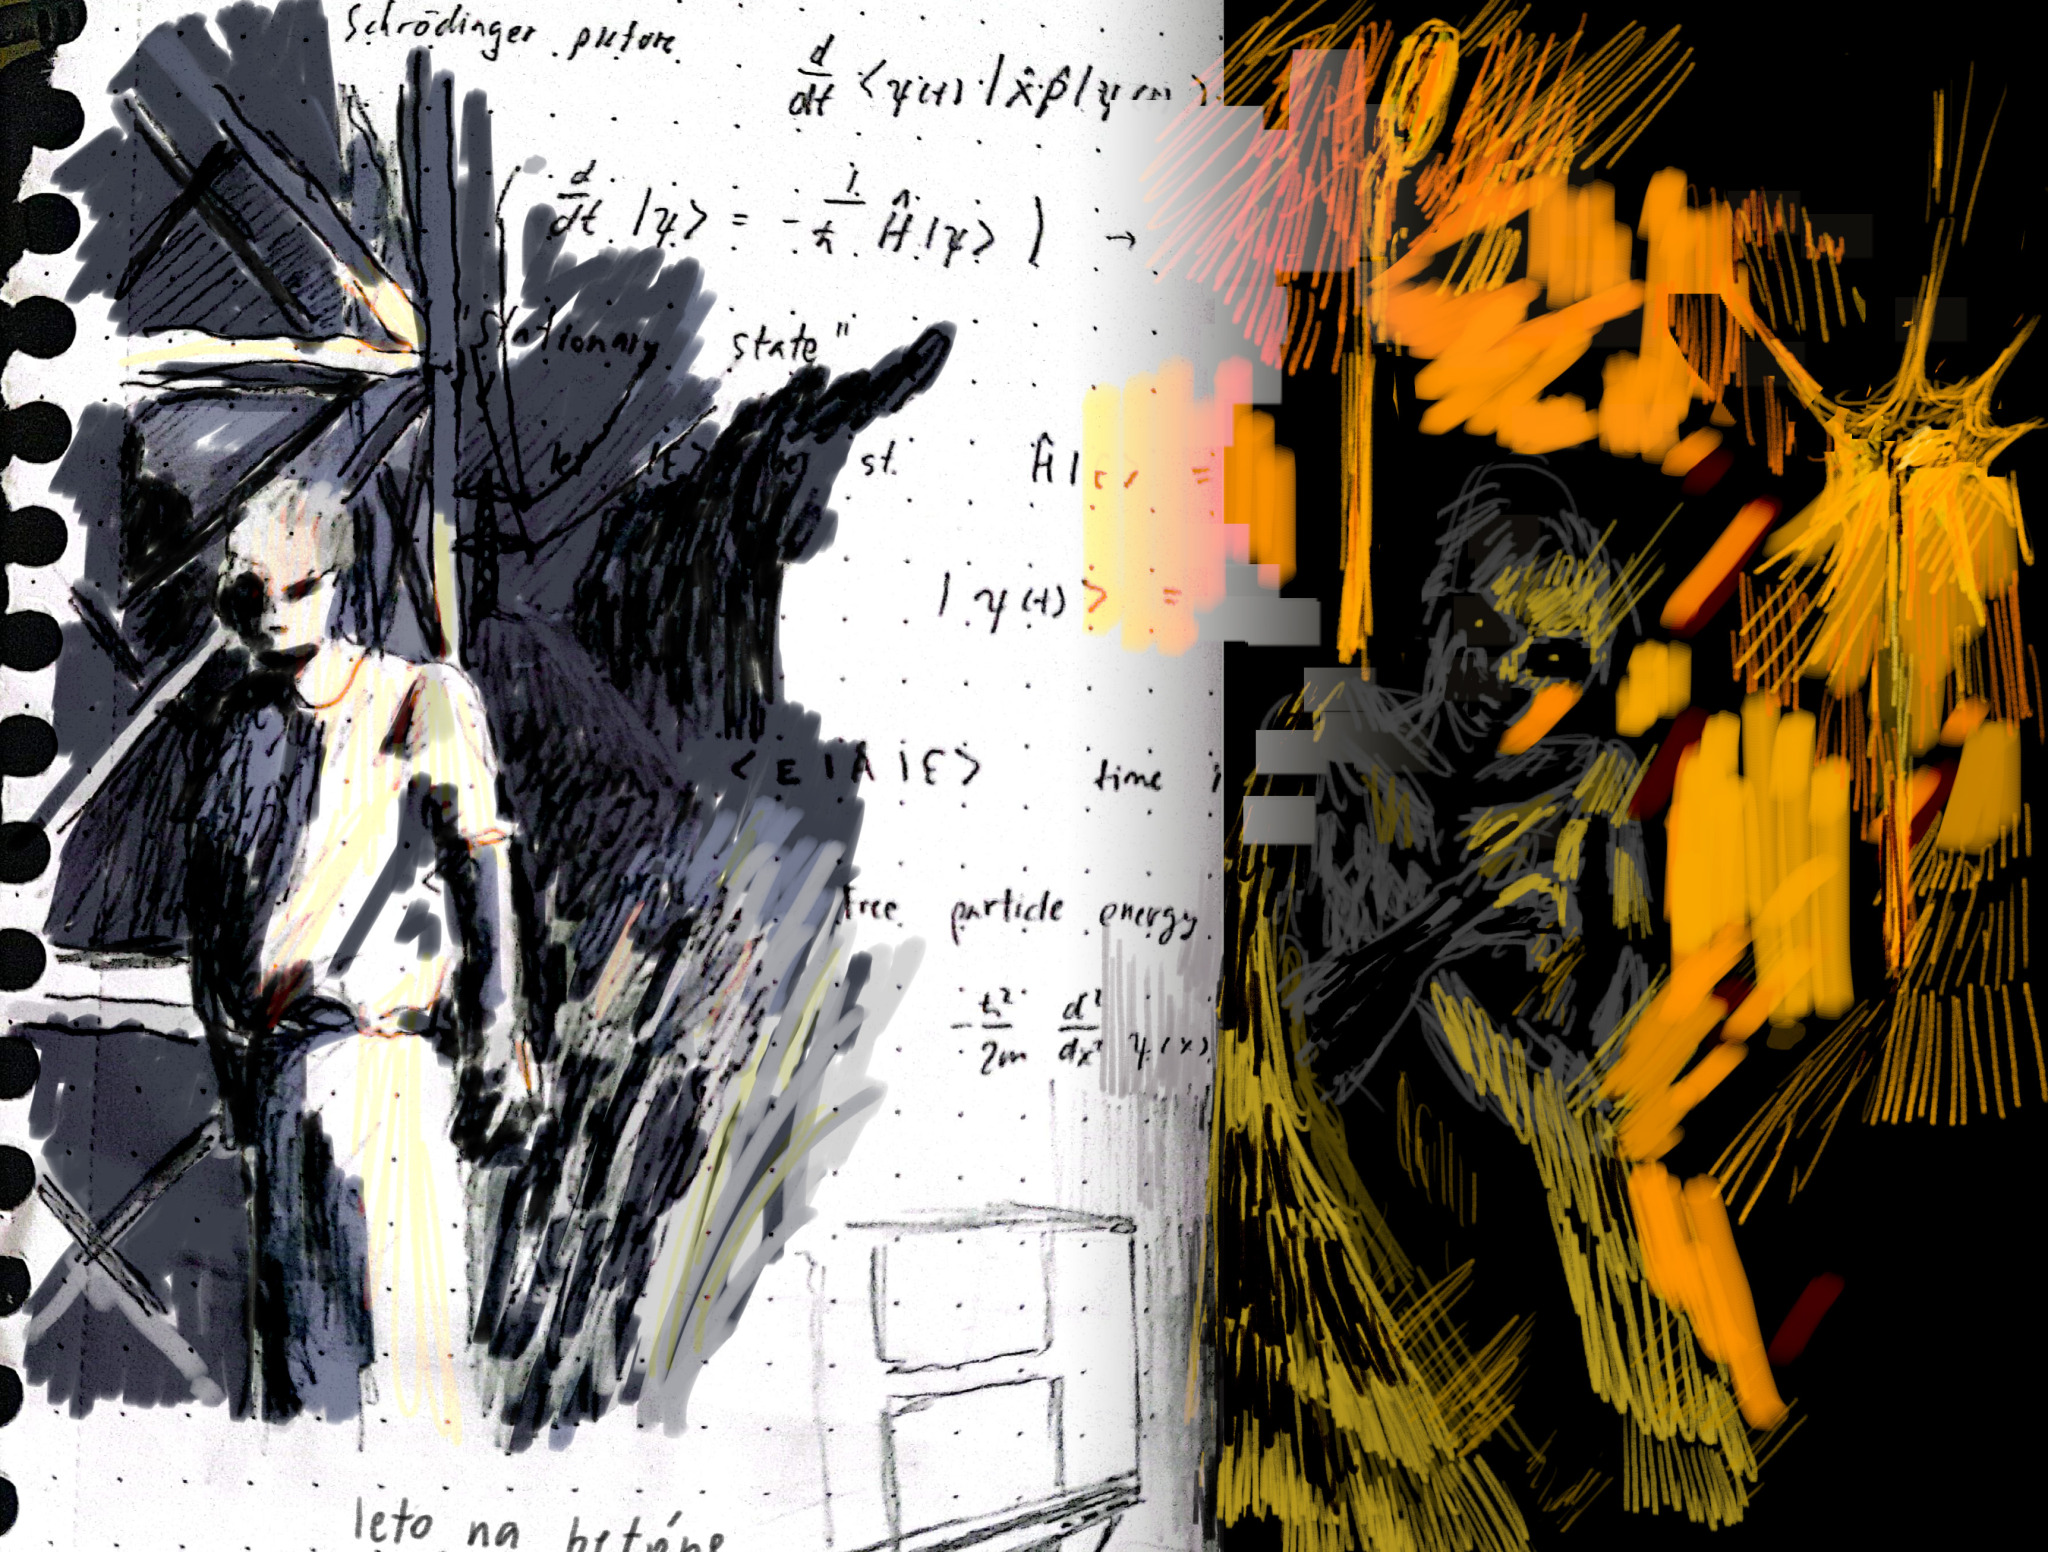 Schrödinger picture
d/dt <ψ(t)|x̂p̂|ψ(t)>
( d/dt |ψ> = - i/ħ Ĥ|ψ> ) →
"Stationary state"
let |E> be st. Ĥ|E> =
|ψ(t)> =
<E|A|E> time
free particle energy
- ħ²/2m d²/dx² ψ(x)
leto na betóne